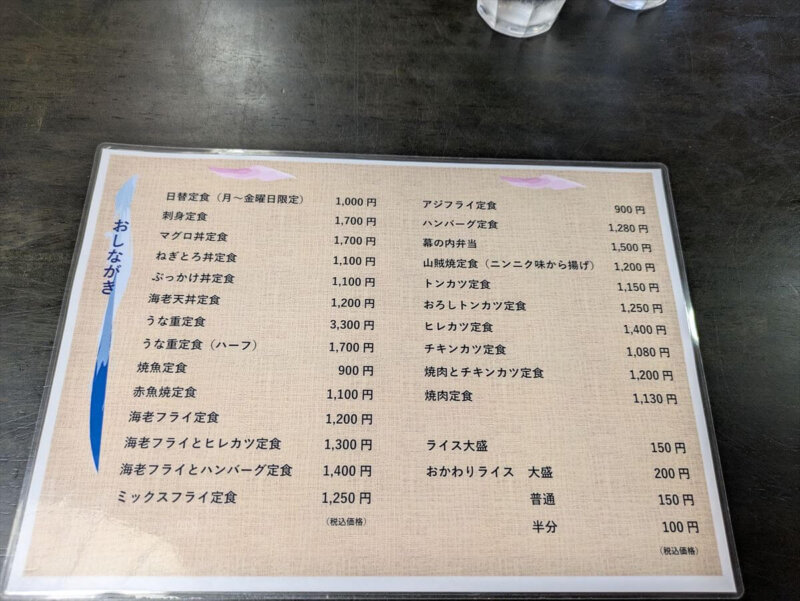 おしながき
日替定食（月～金曜日限定） 1,000 円
刺身定食 1,700 円
マグロ丼定食 1,700 円
ねぎとろ丼定食 1,100 円
ぶっかけ丼定食 1,100 円
海老天丼定食 1,200 円
うな重定食 3,300 円
うな重定食（ハーフ） 1,700 円
焼魚定食 900 円
赤魚焼定食 1,100 円
海老フライ定食 1,200 円
海老フライとヒレカツ定食 1,300 円
海老フライとハンバーグ定食 1,400 円
ミックスフライ定食 1,250 円
（税込価格）
アジフライ定食 900 円
ハンバーグ定食 1,280 円
幕の内弁当 1,500 円
山賊焼定食（ニンニク味から揚げ） 1,200 円
トンカツ定食 1,150 円
おろしトンカツ定食 1,250 円
ヒレカツ定食 1,400 円
チキンカツ定食 1,080 円
焼肉とチキンカツ定食 1,200 円
焼肉定食 1,130 円
ライス大盛 150 円
おかわりライス 大盛 200 円
普通 150 円
半分 100 円
（税込価格）